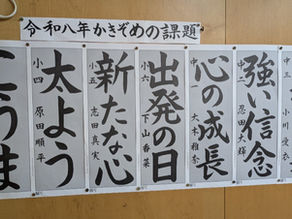 令和八年かきぞめの課題
中三
小川愛衣
強い信念
中二
忍田大輝
心の成長
中一
大木雅奈
出発の日
小六
下山春菜
新たな心
小五
志田真実
太よう
小四
原田順平
こうま